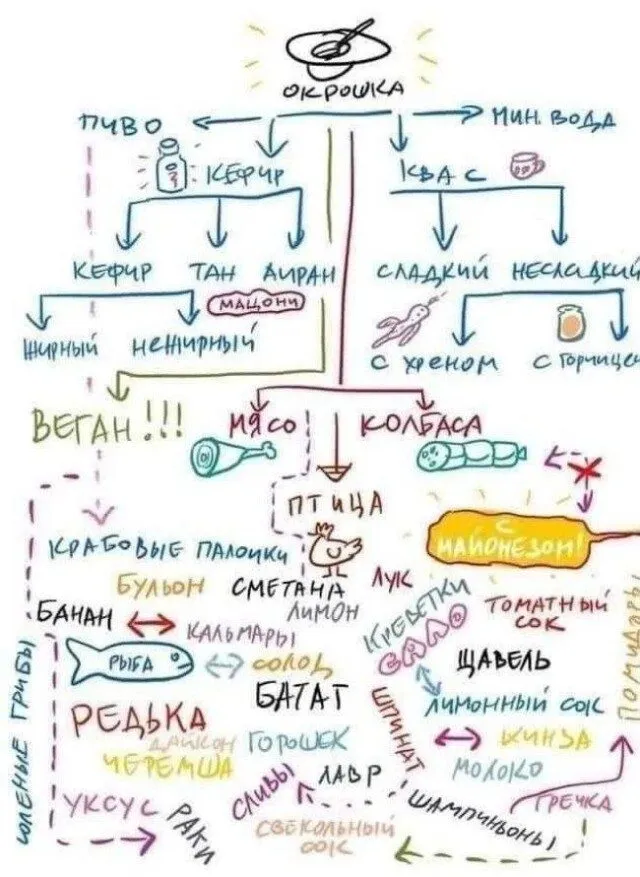 ОКРОШКА
ПИВО
МИН. ВОДА
КЕФИР
КВАС
КЕФИР ТАН АЙРАН
СЛАДКИЙ НЕСЛАДКИЙ
МАЦОНИ
ЖИРНЫЙ НЕЖИРНЫЙ
С ХРЕНОМ С ГОРЧИЦЕЙ
ВЕГАН!!!
МЯСО КОЛБАСА
ПТИЦА
С МАЙОНЕЗОМ!
КРАБОВЫЕ ПАЛОЧКИ
БУЛЬОН СМЕТАНА ЛУК
БАНАН ЛИМОН
КРЕВЕТКИ
ТОМАТНЫЙ
СОК
КАЛЬМАРЫ
САЛО
РЫБА СОЛОД
ЩАВЕЛЬ
ПОМИДОРЫ
СОЛЕНЫЕ ГРИБЫ
БАТАТ
ШПИНАТ
ЛИМОННЫЙ СОК
РЕДЬКА
ДАЙКОН ГОРОШЕК
КИНЗА
ЧЕРЕМША
СЛИВЫ
ЛАВР
МОЛОКО
УКСУС
РАКИ
ШАМПИНЬОНЫ
ГРЕЧКА
СВЕКОЛЬНЫЙ
СОК